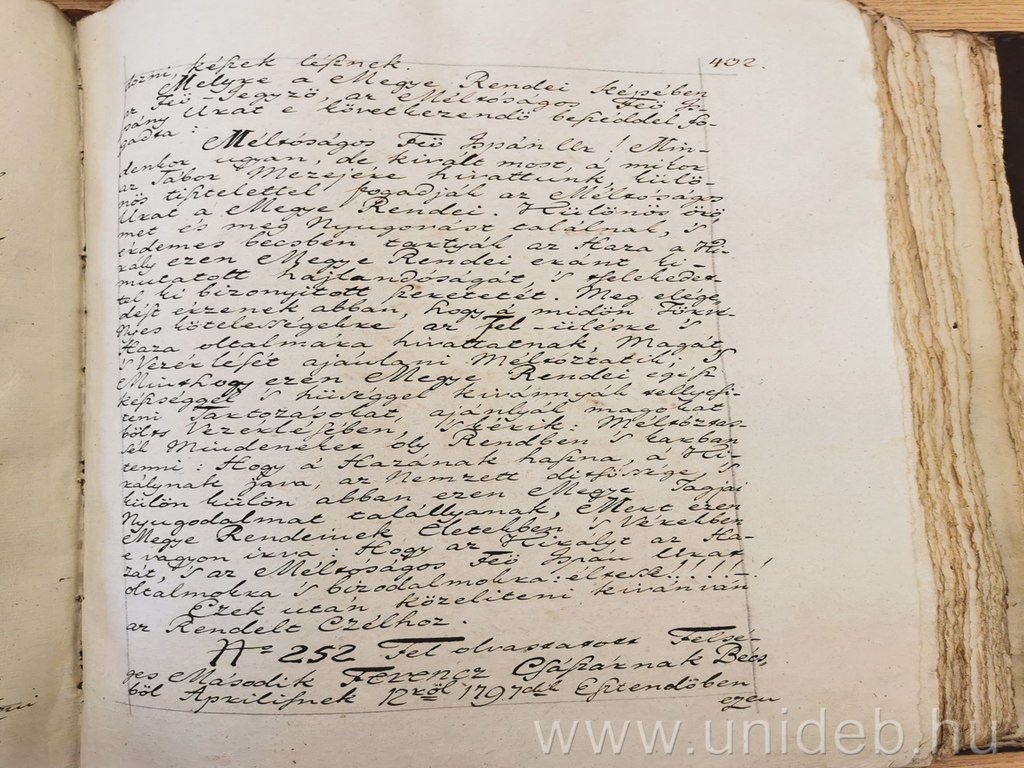 402.
tözni, készek lésznek.
Melyre a Megye Rendei képében
a Fö-Jegyzö, az Méltóságos Feö Is-
pány Urat e következendö beszéddel fo-
gadta:
Méltóságos Feö Ispán Ur! Min-
denkor ugyan, de kivált most, a' midön
az Tábor Mezejére hivattunk, külö-
nös tisztelettel fogadják az Méltóságos
Urat a Megye Rendei. Különös örö-
met és meg Nyugovást találnak, 's
érdemes betsben tartyák az Haza a Ki-
rály ezen Megye Rendei eránt ki-
mutatott hajlandóságát 's tselekedet-
tel ki bizonyitott szeretetét. Meg elége-
dést érzenek abban, hogy a' midön Törvé-
nyes kötelességekre az fel-ülésre 's
Haza oltalmára hivattatnak, Magát
's Vezérlését ajánlani Méltóztatik, 's
Minthogy ezen Megye Rendei egész
készséggel 's hűséggel kivánnyák tellyesi-
teni Tartozásokat, ajánlják magokat
bölts Vezérlésében, 's kérik: Méltóztas-
sék Mindeneket oly Rendben 's karban
tenni: Hogy á Hazának haszna, á Ki-
rálynak java, az Nemzett ditsösége, 's
külön külön abban ezen Megye Tagjai
Nyugodalmat talállyanak, Mert ezen
Megye Rendeinek Életekben 's Vérekben
e vagyon irva: Hogy az Királyt az Ha-
zát, 's az Méltóságos Feö Ispán Urat
oltalmokra 's bizodalmokra: éltesse!!!!!!
Ezek után közeliteni kivánván
az Rendelt Czélhoz.
Nº 252 Fel olvastatott Felsé-
ges Második Ferencz Császárnak Bécs-
böl Aprilisnek 12röl 1797dik Esztendöben
ezen
www.unideb.hu